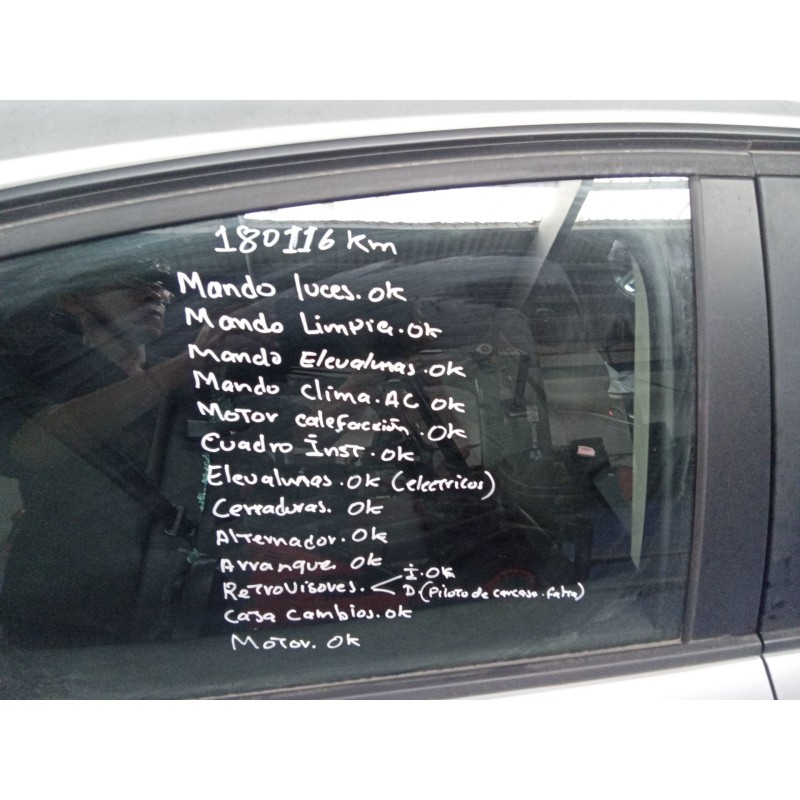 180116 Km
Mando luces. ok
Mando Limpia. ok
Mando Elevalunas. ok
Mando Clima. AC ok
Motor calefacción. ok
Cuadro Inst. ok
Elevalunas. ok (electricos)
Cerraduras. ok
Alternador. ok
Arranque. ok
Retrovisores. < I. ok
D (Piloto de carcasa. falta)
Caja Cambios. ok
Motor. ok